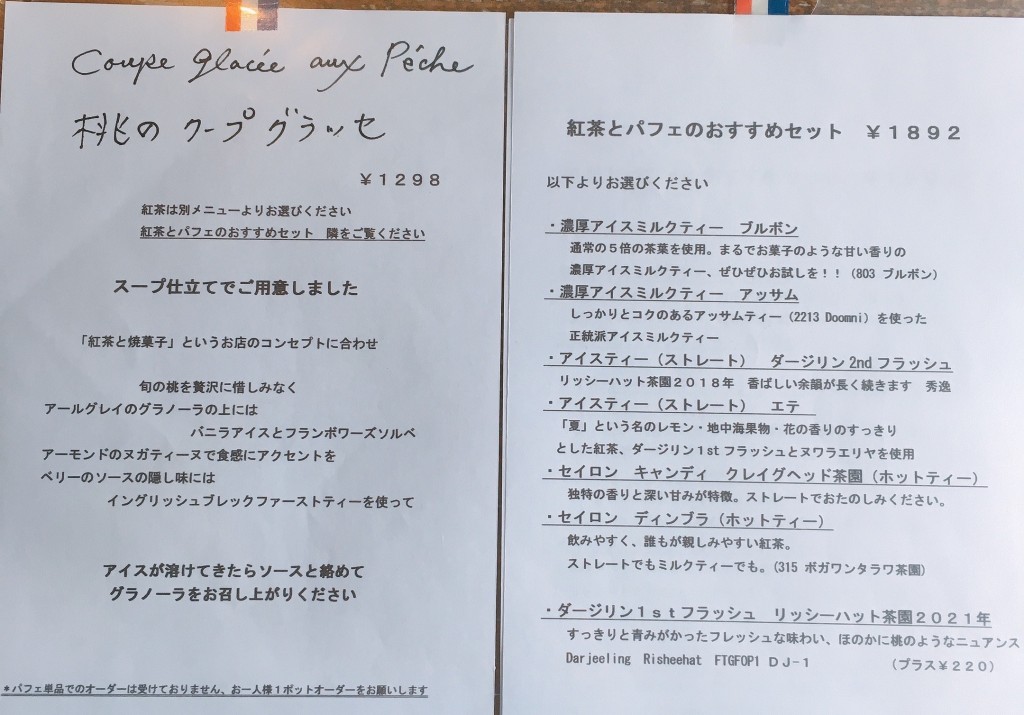 Coupe glacée aux Pêche
桃の クープ グラッセ
￥１２９８
紅茶は別メニューよりお選びください
紅茶とパフェのおすすめセット　隣をご覧ください
スープ仕立てでご用意しました
「紅茶と焼菓子」というお店のコンセプトに合わせ
旬の桃を贅沢に惜しみなく
アールグレイのグラノーラの上には
バニラアイスとフランボワーズソルベ
アーモンドのヌガティーヌで食感にアクセントを
ベリーのソースの隠し味には
イングリッシュブレックファーストティーを使って
アイスが溶けてきたらソースと絡めて
グラノーラをお召し上がりください
＊パフェ単品でのオーダーは受けておりません、お一人様１ポットオーダーをお願いします
紅茶とパフェのおすすめセット　￥１８９２
以下よりお選びください
・濃厚アイスミルクティー　ブルボン
通常の５倍の茶葉を使用。まるでお菓子のような甘い香りの
濃厚アイスミルクティー、ぜひぜひお試しを！！（803 ブルボン）
・濃厚アイスミルクティー　アッサム
しっかりとコクのあるアッサムティー（2213 Doomni）を使った
正統派アイスミルクティー
・アイスティー（ストレート）　ダージリン 2nd フラッシュ
リッシーハット茶園２０１８年　香ばしい余韻が長く続きます　秀逸
・アイスティー（ストレート）　エテ
「夏」という名のレモン・地中海果物・花の香りのすっきり
とした紅茶、ダージリン１st フラッシュとヌワラエリヤを使用
・セイロン　キャンディ　クレイグヘッド茶園（ホットティー）
独特の香りと深い甘みが特徴。ストレートでおたのしみください。
・セイロン　ディンブラ（ホットティー）
飲みやすく、誰もが親しみやすい紅茶。
ストレートでもミルクティーでも。（315 ボガワンタラワ茶園）
・ダージリン１ｓｔフラッシュ　リッシーハット茶園２０２１年
すっきりと青みがかったフレッシュな味わい、ほのかに桃のようなニュアンス
Darjeeling Risheehat FTGFOP1 ＤＪ−１　（プラス￥２２０）